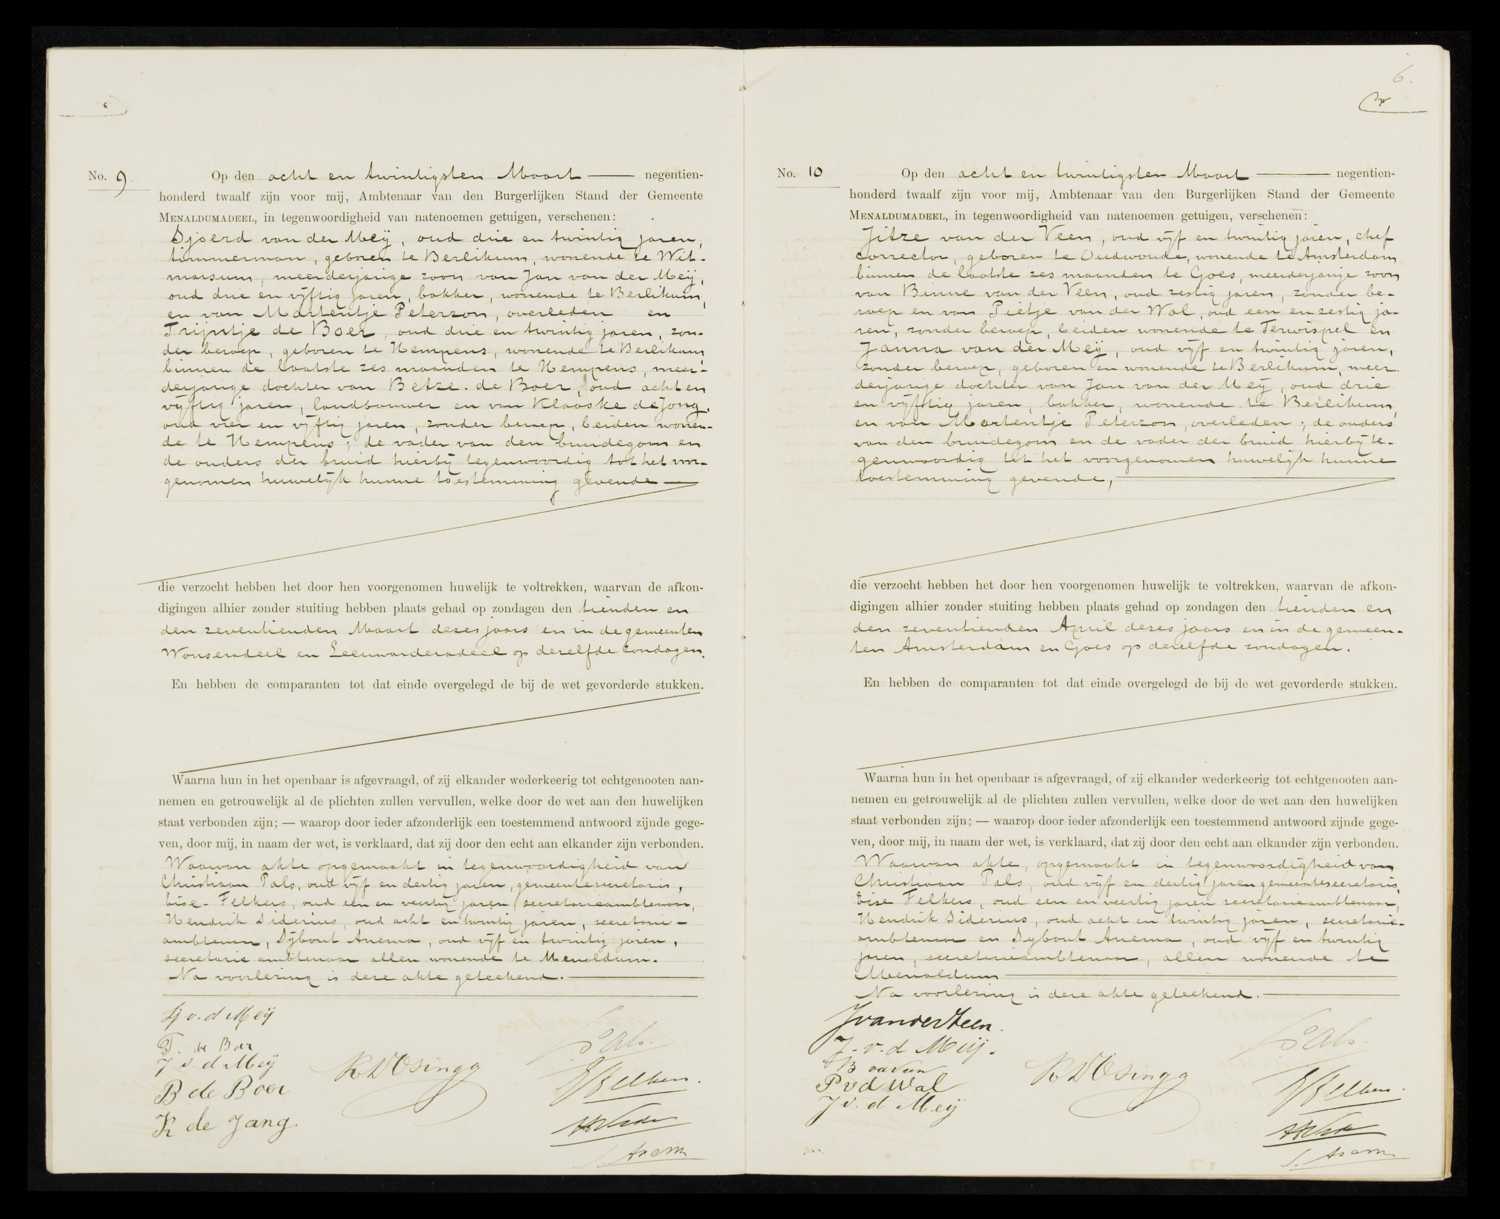 No. 9 Op den acht en twintigsten Maart negentien-
honderd twaalf zijn voor mij, Ambtenaar van den Burgerlijken Stand der Gemeente
MENALDUMADEEL, in tegenwoordigheid van natenoemen getuigen, verschenen:
Sjoerd van der Meij, oud drie en twintig jaren,
timmerman, geboren te Berlikum, wonende te Wit-
marsum, meerderjarige zoon van Jan van der Meij,
oud drie en vijftig jaren, bakker, wonende te Berlikum,
en van Martentje Peterzon, overleden en
Trijntje de Boer, oud drie en twintig jaren, zon-
der beroep, geboren te Hempens, wonende te Berlikum,
binnen de laatste zes maanden te Hempens, meer-
derjarige dochter van Betze de Boer, oud acht en
vijftig jaren, landbouwer en van Klaaske de Jong,
oud vier en vijftig jaren, zonder beroep, beiden wonen-
de te Hempens; de vader van den bruidegom en
de ouders der bruid hierbij tegenwoordig tot het voor-
genomen huwelijk hunne toestemming gevende
die verzocht hebben het door hen voorgenomen huwelijk te voltrekken, waarvan de afkon-
digingen alhier zonder stuiting hebben plaats gehad op zondagen den tienden en
den zeventienden Maart dezes jaars en in de gemeenten
Wonseradeel en Leeuwarderadeel op dezelfde zondagen.
En hebben de comparanten tot dat einde overgelegd de bij de wet gevorderde stukken.
Waarna hun in het openbaar is afgevraagd, of zij elkander wederkeerig tot echtgenooten aan-
nemen en getrouwelijk al de plichten zullen vervullen, welke door de wet aan den huwelijken
staat verbonden zijn; — waarop door ieder afzonderlijk een toestemmend antwoord zijnde gege-
ven, door mij, in naam der wet, is verklaard, dat zij door den echt aan elkander zijn verbonden.
Waarvan akte opgemaakt in tegenwoordigheid van
Christiaan Pals, oud vijf en dertig jaren, gemeentesecretaris,
Eise Felkers, oud een en veertig jaren, secretarieambtenaar,
Hendrik Siderius, oud acht en twintig jaren, secretarie-
ambtenaar, Sijbout Anema, oud vijf en twintig jaren,
secretarie ambtenaar allen wonende te Menaldum.
Na voorlezing is deze akte geteekend.
Sj v. d Meij
T. de Boer
J v d Meij
B de Boer
K de Jong
Pals.
6.
No. 10 Op den acht en twintigsten Maart negentien-
honderd twaalf zijn voor mij, Ambtenaar van den Burgerlijken Stand der Gemeente
MENALDUMADEEL, in tegenwoordigheid van natenoemen getuigen, verschenen:
Jitze van der Veen, oud vijf en twintig jaren, chef
corrector, geboren te Oudwoude, wonende te Amsterdam
binnen de laatste zes maanden te Goes, meerderjarige zoon
van Binne van der Veen, oud zestig jaren, zonder be-
roep en van Pietje van der Wal, oud een en zestig ja-
ren, zonder beroep, beiden wonende te Terwispel en
Janna van der Meij, oud vijf en twintig jaren,
zonder beroep, geboren en wonende te Berlikum, meer
derjarige dochter van Jan van der Meij, oud drie
en vijftig jaren, bakker, wonende te Berlikum,
en van Martentje Peterzon, overleden; de ouders
van den bruidegom en de vader der bruid hierbij te-
genwoordig tot het voorgenomen huwelijk hunne
toestemming gevende,
die verzocht hebben het door hen voorgenomen huwelijk te voltrekken, waarvan de afkon-
digingen alhier zonder stuiting hebben plaats gehad op zondagen den tienden en
den zeventienden April dezes jaars en in de gemeen-
ten Amsterdam en Goes op dezelfde zondagen.
En hebben de comparanten tot dat einde overgelegd de bij de wet gevorderde stukken.
Waarna hun in het openbaar is afgevraagd, of zij elkander wederkeerig tot echtgenooten aan-
nemen en getrouwelijk al de plichten zullen vervullen, welke door de wet aan den huwelijken
staat verbonden zijn; — waarop door ieder afzonderlijk een toestemmend antwoord zijnde gege-
ven, door mij, in naam der wet, is verklaard, dat zij door den echt aan elkander zijn verbonden.
Waarvan akte, opgemaakt in tegenwoordigheid van
Christiaan Pals, oud vijf en dertig jaren gemeentesecretaris,
Eise Felkers, oud een en veertig jaren secretarieambtenaar,
Hendrik Siderius, oud acht en twintig jaren, secretarie-
ambtenaar en Sijbout Anema, oud vijf en twintig
jaren, secretarieambtenaar, allen wonende te
Menaldum
Na voorlezing is deze akte geteekend.
J van der Veen.
J. v. d Meij.
B vd Veen
P v d Wal
J v. d Meij
Pals.